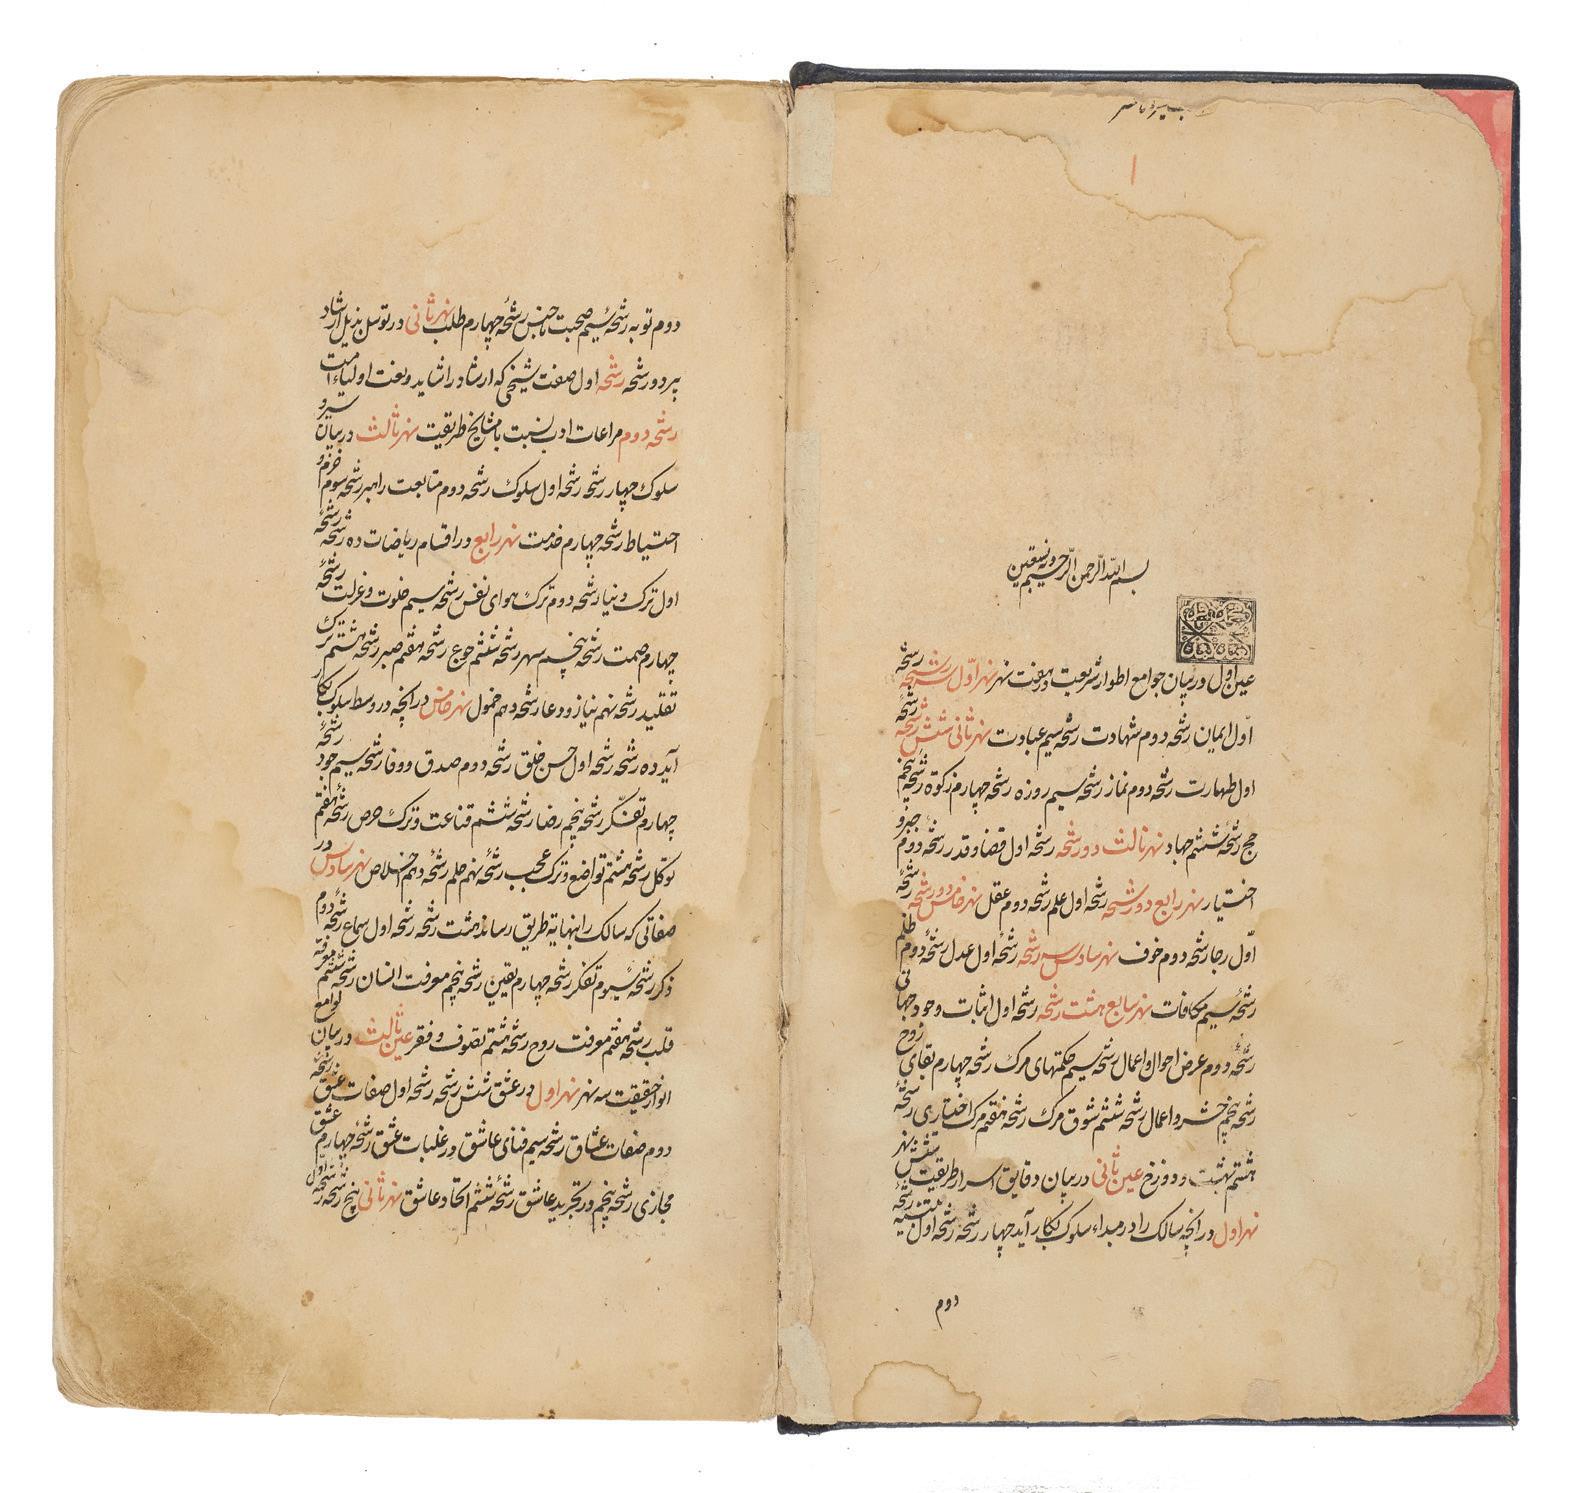 بسم الله الرحمن الرحیم وبه نستعین
عین اول در بیان جوامع اطوار شریعت در هفت نهر نهر اول سه رشحه رشحه
اول ایمان رشحه دوم شهادت رشحه سیم عبادت نهر ثانی شش رشحه رشحهٔ
اول طهارت رشحه دوم نماز رشحه سیم روزه رشحه چهارم زکوة رشحه پنجم
حج رشحهٔ ششم جهاد نهر ثالث دو رشحه رشحه اول قضا و قدر رشحه دوم جبر و
اختیار نهر رابع دو رشحه رشحه اول علم رشحه دوم عقل نهر خامس دو رشحه رشحهٔ
اول رجا رشحه دوم خوف نهر سادس سه رشحه رشحهٔ اول عدل رشحهٔ دوم ظلم
رشحهٔ سیم مکافات نهر سابع هشت رشحه رشحه اول اثبات وجود جهانی
رشحهٔ دوم عرض احوال و اعمال رشحه سیم حکمتهای مرک رشحه چهارم بقای روح
رشحه پنجم حشر و اعمال رشحه ششم شوق مرک رشحه هفتم مرک اختیاری رشحهٔ
هشتم بهشت و دوزخ عین ثانی در بیان دقایق اسرار طریقت شش نهر
نهر اول در انچه سالک را در مبداء سلوک بکار آید چهار رشحه رشحه اول تنبیه رشحهٔ
دوم
دوم توبه رشحهٔ سیم صحبت با جنس رشحهٔ چهارم طلب نهر ثانی در توسل بذیل ارشاد
پیر دو رشحه رشحه اول صفت شیخی که ارشاد را شاید و نعت اولیاء امت
رشحه دوم مراعات ادب نسبت با مشایخ طریقت نهر ثالث در بیان سیر و
سلوک چهار رشحه رشحه اول سلوک رشحه دوم متابعت راهبر رشحه سوم حزم و
احتیاط رشحه چهارم خدمت نهر رابع در اقسام ریاضات ده رشحه رشحهٔ
اول ترک دنیا رشحه دوم ترک هوای نفس رشحه سیم خلوت و عزلت رشحهٔ
چهارم صمت رشحه پنجم سهر رشحه ششم جوع رشحه هفتم صبر رشحه هشتم ترک
تقلید رشحه نهم نیاز و دعا رشحه دهم خمول نهر خامس در انچه در وسط سلوک بکار
آید ده رشحه رشحه اول حسن خلق رشحه دوم صدق و وفا رشحه سیم جود رشحهٔ
چهارم تفکر رشحه پنجم رضا رشحه ششم قناعت و ترک حرص رشحهٔ هفتم
توکل رشحه هشتم تواضع و ترک عجب رشحهٔ نهم حلم رشحهٔ دهم اخلاص نهر سادس در
صفاتی که سالک را بنهایة طریق رساند هشت رشحه رشحه اول سماع رشحهٔ دوم
ذکر رشحهٔ سیوم تفکر رشحه چهارم یقین رشحه پنجم معرفت انسان رشحهٔ ششم معرفة
قلب رشحه هفتم معرفت روح رشحه هشتم تصوف و فقر عین ثالث در بیان لوامع
انوار حقیقت سه نهر نهر اول در عشق شش رشحه رشحه اول صفات عشق رشحهٔ
دوم صفات عشاق رشحه سیم فنای عاشق در غلبات عشق رشحهٔ چهارم عشق
مجازی رشحه پنجم در تجرید عاشق رشحهٔ ششم اتحاد عاشق نهر ثانی پنج رشحه رشحهٔ اول